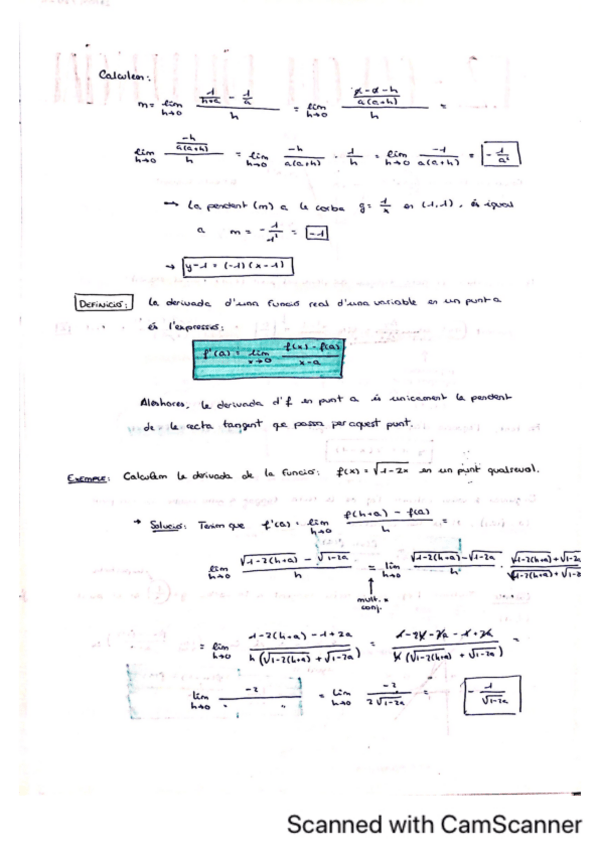 Calculem:
m = lim h→0 (1/(h+a) - 1/a)/h = lim h→0 ((a-a-h)/(a(a+h)))/h =
lim h→0 (-h/(a(a+h)))/h = lim h→0 -h/(a(a+h)) · 1/h = lim h→0 -1/(a(a+h)) = -1/a²
→ La pendent (m) a la corba y = 1/x en (1,1), és igual
a m = -1/1² = -1
→ y-1 = (-1)(x-1)
DEFINICIÓ: La derivada d'una funció real d'una variable en un punt a
és l'expressió:
f'(a) = lim x→0 (f(x) - f(a))/(x-a)
Aleshores, la derivada d'f en punt a és unicament la pendent
de la recta tangent que passa per aquest punt.
EXEMPLE: Calculem la derivada de la funció: f(x) = √1-2x en un punt qualsevol.
→ Solució: Tenim que f'(a) = lim h→0 (f(h+a) - f(a))/h =
lim h→0 (√1-2(h+a) - √1-2a)/h = lim h→0 (√1-2(h+a) - √1-2a)/h · (√1-2(h+a) + √1-2a)/(√1-2(h+a) + √1-2
mult. x
conj.
= lim h→0 (1-2(h+a) - 1+2a)/(h(√1-2(h+a) + √1-2a)) = (1-2h-2a-1+2a)/(h(√1-2(h+a) + √1-2a)) =
lim h→0 -2/(" ") = lim h→0 -2/(2√1-2a) = -1/√1-2a
Scanned with CamScanner